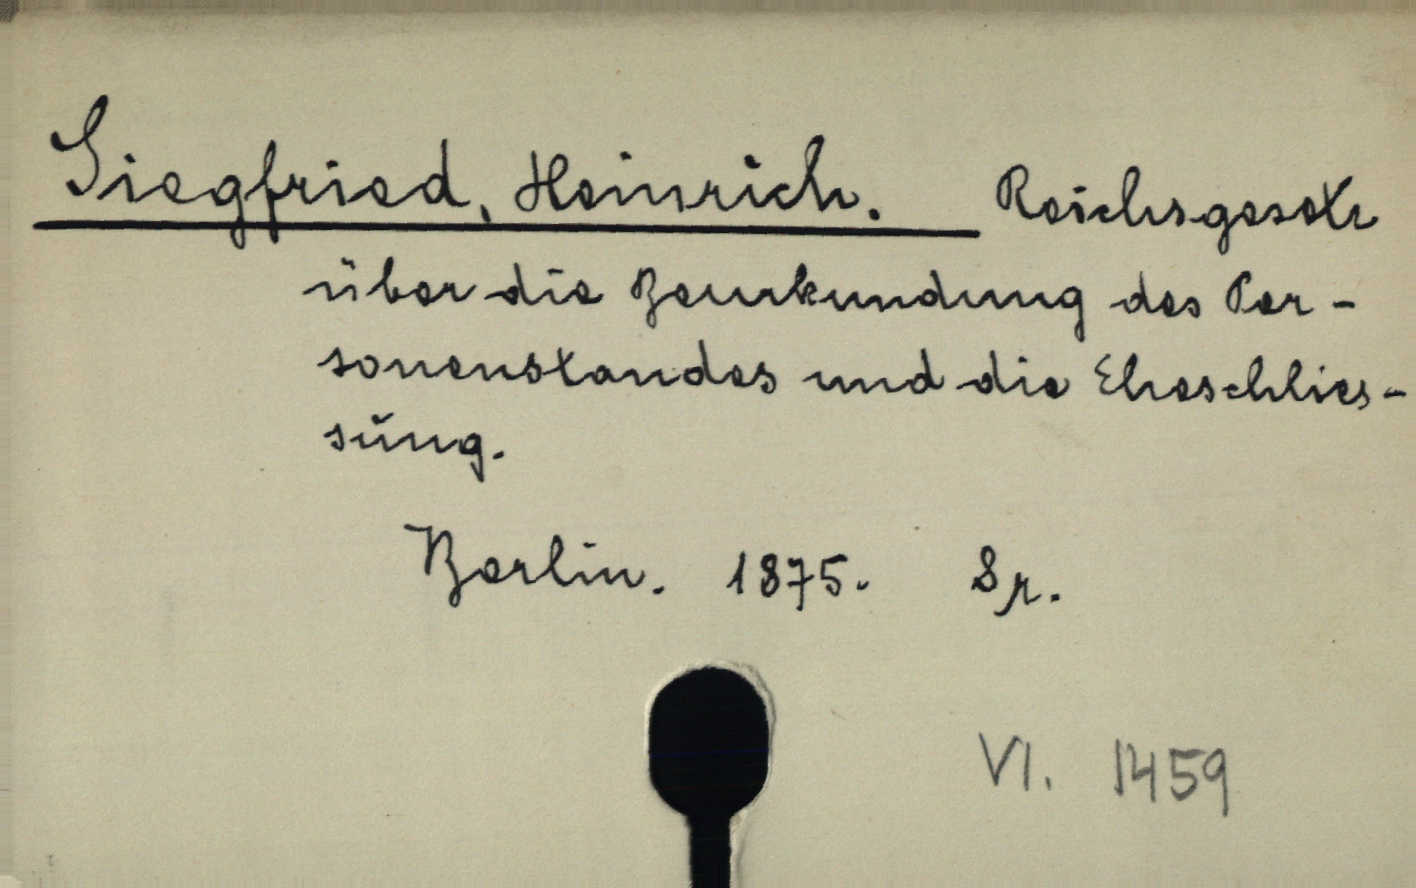 Siegfried, Heinrich. Reichsgesetz
über die Beurkundung des Per-
sonenstandes und die Eheschlies-
sŭng.
Berlin. 1875. Sp.
VI. 1459